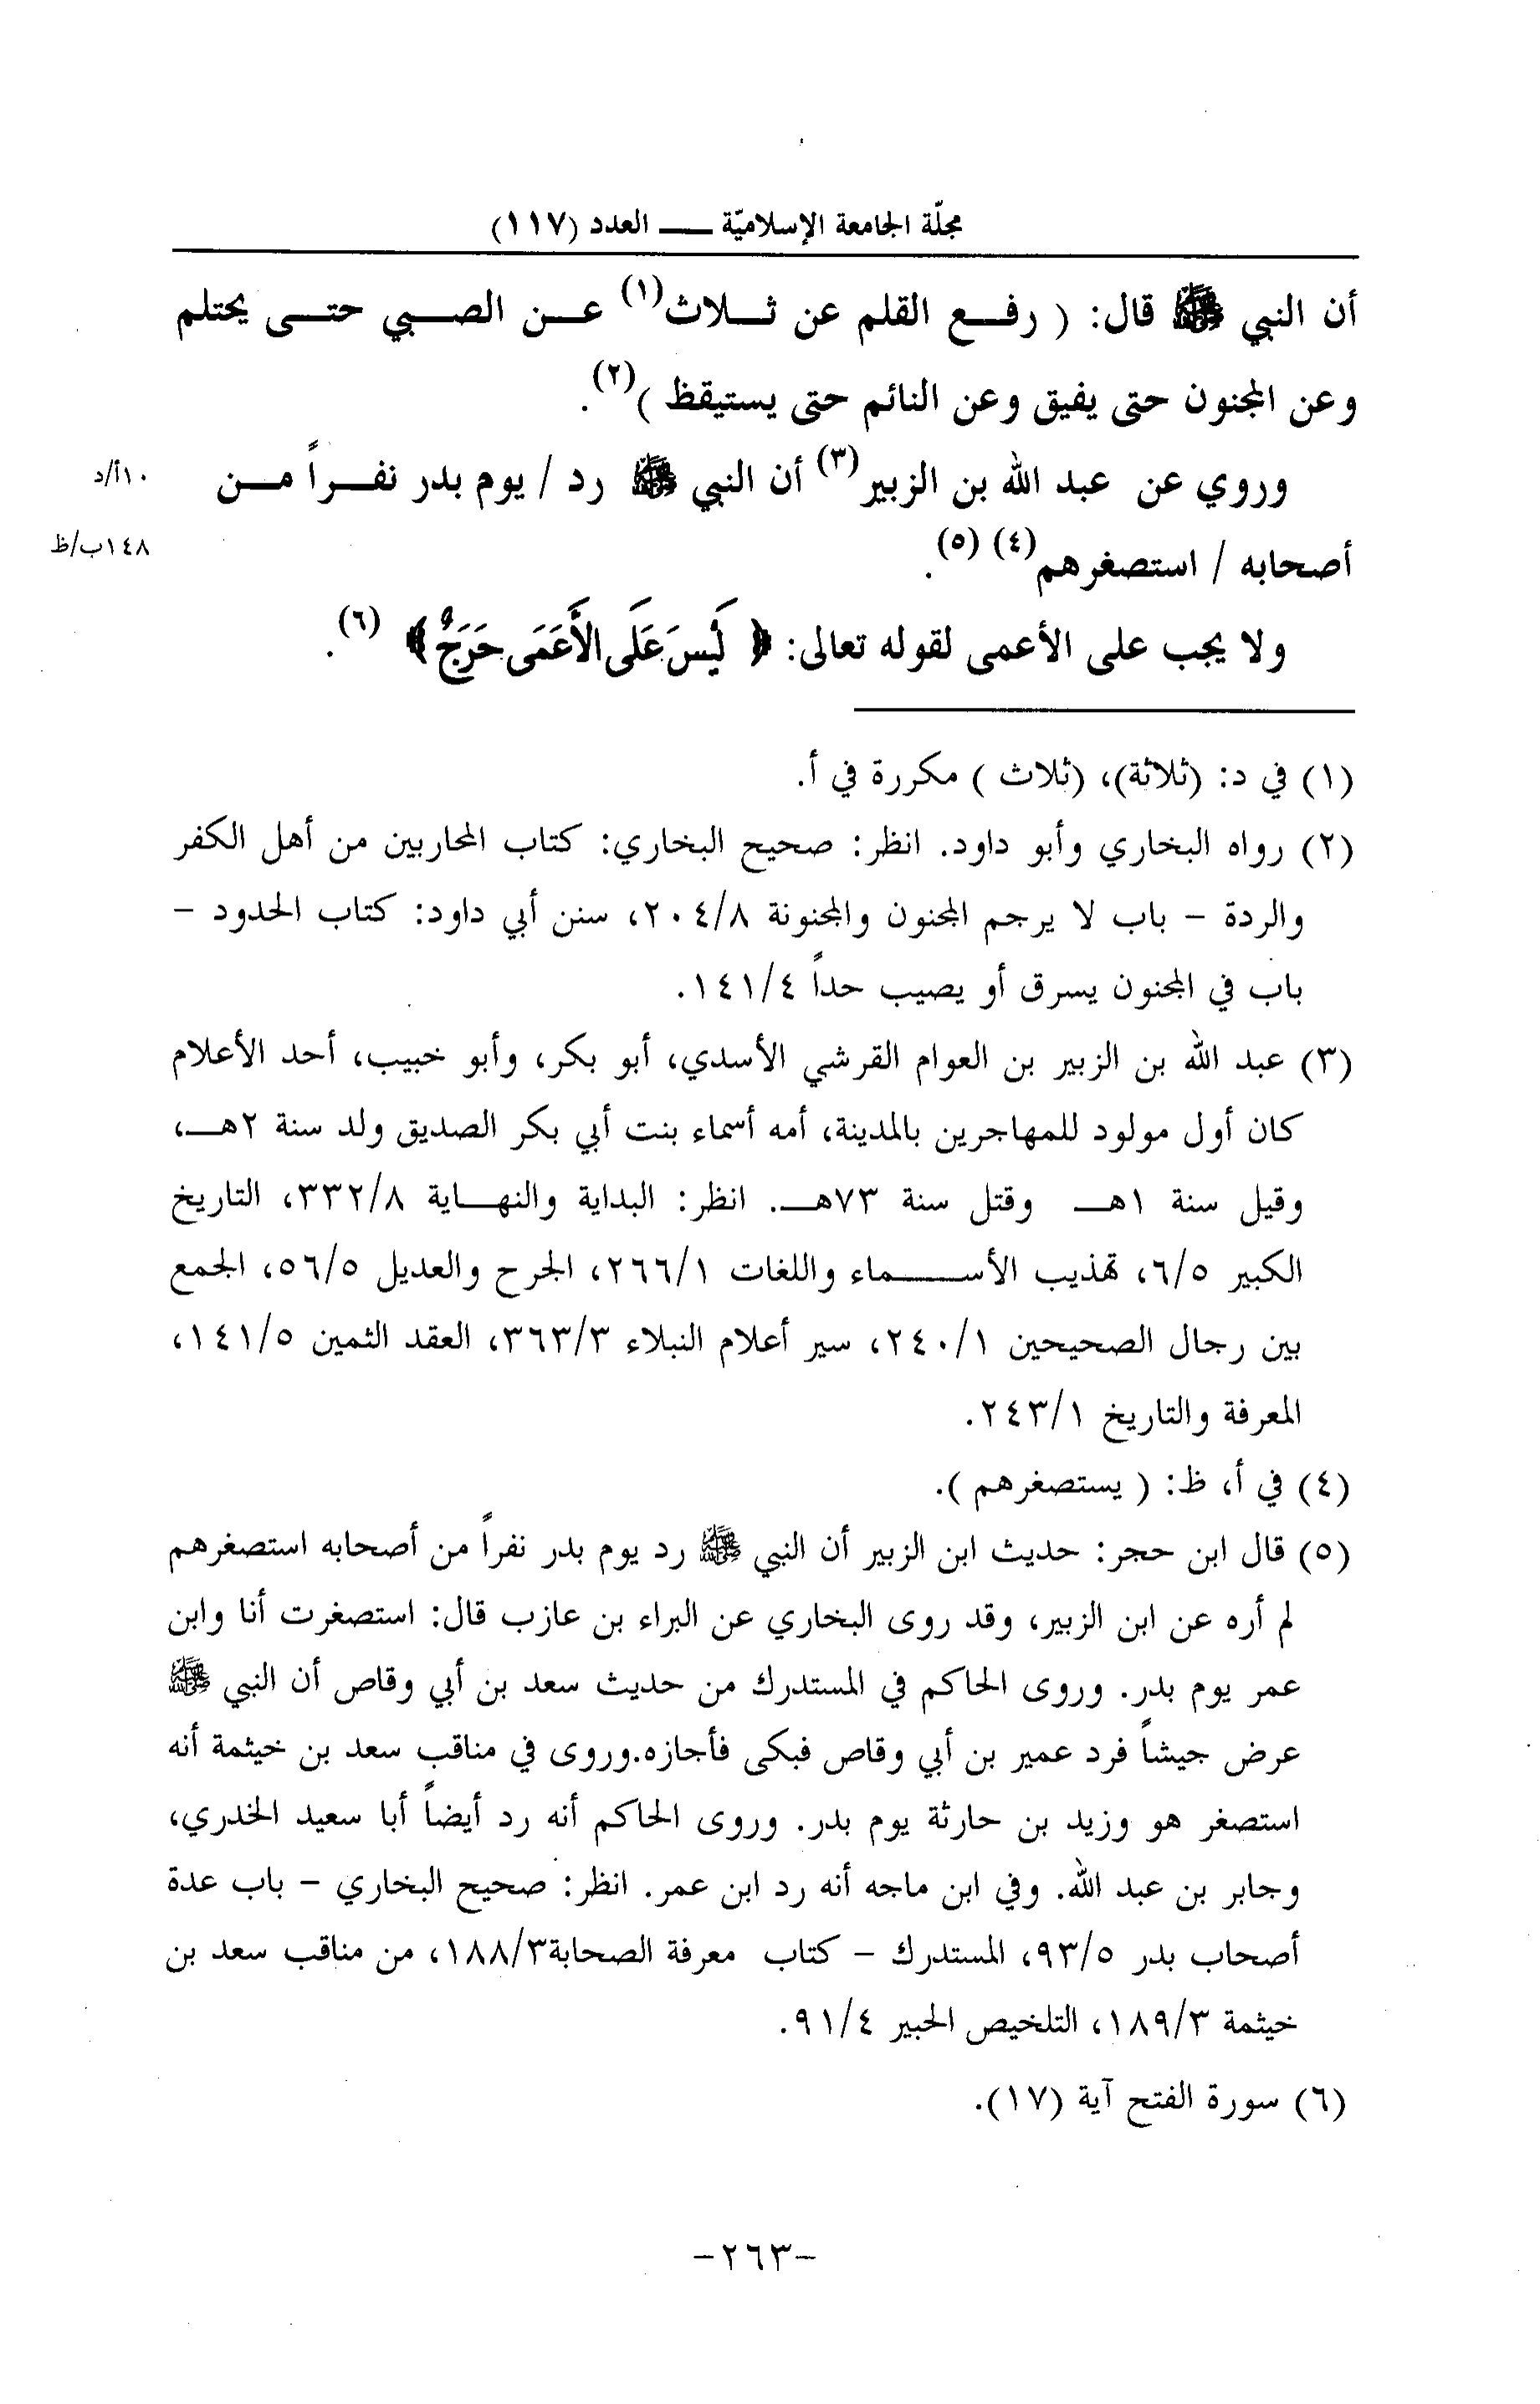 مجلّة الجامعة الإسلاميّة ـــ العدد (١١٧)
أن النبي ﷺ قال: ( رفـع القلم عن ثـلاث(١) عـن الصـبي حتـى يحتلم
وعن المجنون حتى يفيق وعن النائم حتى يستيقظ )(٢).
وروي عن عبد الله بن الزبير(٣) أن النبي ﷺ رد / يوم بدر نفـراً مـن
١٠أ/د
أصحابه / استصغرهم(٤) (٥).
١٤٨ب/ظ
ولا يجب على الأعمى لقوله تعالى: ﴿ لَيْسَ عَلَى الأَعْمَى حَرَجٌ﴾ (٦).
(١) في د: (ثلاثة)، (ثلاث ) مكررة في أ.
(٢) رواه البخاري وأبو داود. انظر: صحيح البخاري: كتاب المحاربين من أهل الكفر
والردة – باب لا يرجم المجنون والمجنونة ٢٠٤/٨، سنن أبي داود: كتاب الحدود –
باب في المجنون يسرق أو يصيب حداً ١٤١/٤.
(٣) عبد الله بن الزبير بن العوام القرشي الأسدي، أبو بكر، وأبو خبيب، أحد الأعلام
كان أول مولود للمهاجرين بالمدينة، أمه أسماء بنت أبي بكر الصديق ولد سنة ٢هـ،
وقيل سنة ١هـ وقتل سنة ٧٣هـ. انظر: البداية والنهـاية ٣٣٢/٨، التاريخ
الكبير ٦/٥، تهذيب الأسـماء واللغات ٢٦٦/١، الجرح والعديل ٥٦/٥، الجمع
بين رجال الصحيحين ٢٤٠/١، سير أعلام النبلاء ٣٦٣/٣، العقد الثمين ١٤١/٥،
المعرفة والتاريخ ٢٤٣/١.
(٤) في أ، ظ: ( يستصغرهم ).
(٥) قال ابن حجر: حديث ابن الزبير أن النبي ﷺ رد يوم بدر نفراً من أصحابه استصغرهم
لم أره عن ابن الزبير، وقد روى البخاري عن البراء بن عازب قال: استصغرت أنا وابن
عمر يوم بدر. وروى الحاكم في المستدرك من حديث سعد بن أبي وقاص أن النبي ﷺ
عرض جيشاً فرد عمير بن أبي وقاص فبكى فأجازه.وروى في مناقب سعد بن خيثمة أنه
استصغر هو وزيد بن حارثة يوم بدر. وروى الحاكم أنه رد أيضاً أبا سعيد الخدري،
وجابر بن عبد الله. وفي ابن ماجه أنه رد ابن عمر. انظر: صحيح البخاري – باب عدة
أصحاب بدر ٩٣/٥، المستدرك – كتاب معرفة الصحابة١٨٨/٣، من مناقب سعد بن
خيثمة ١٨٩/٣، التلخيص الحبير ٩١/٤.
(٦) سورة الفتح آية (١٧).
–٢٦٣–